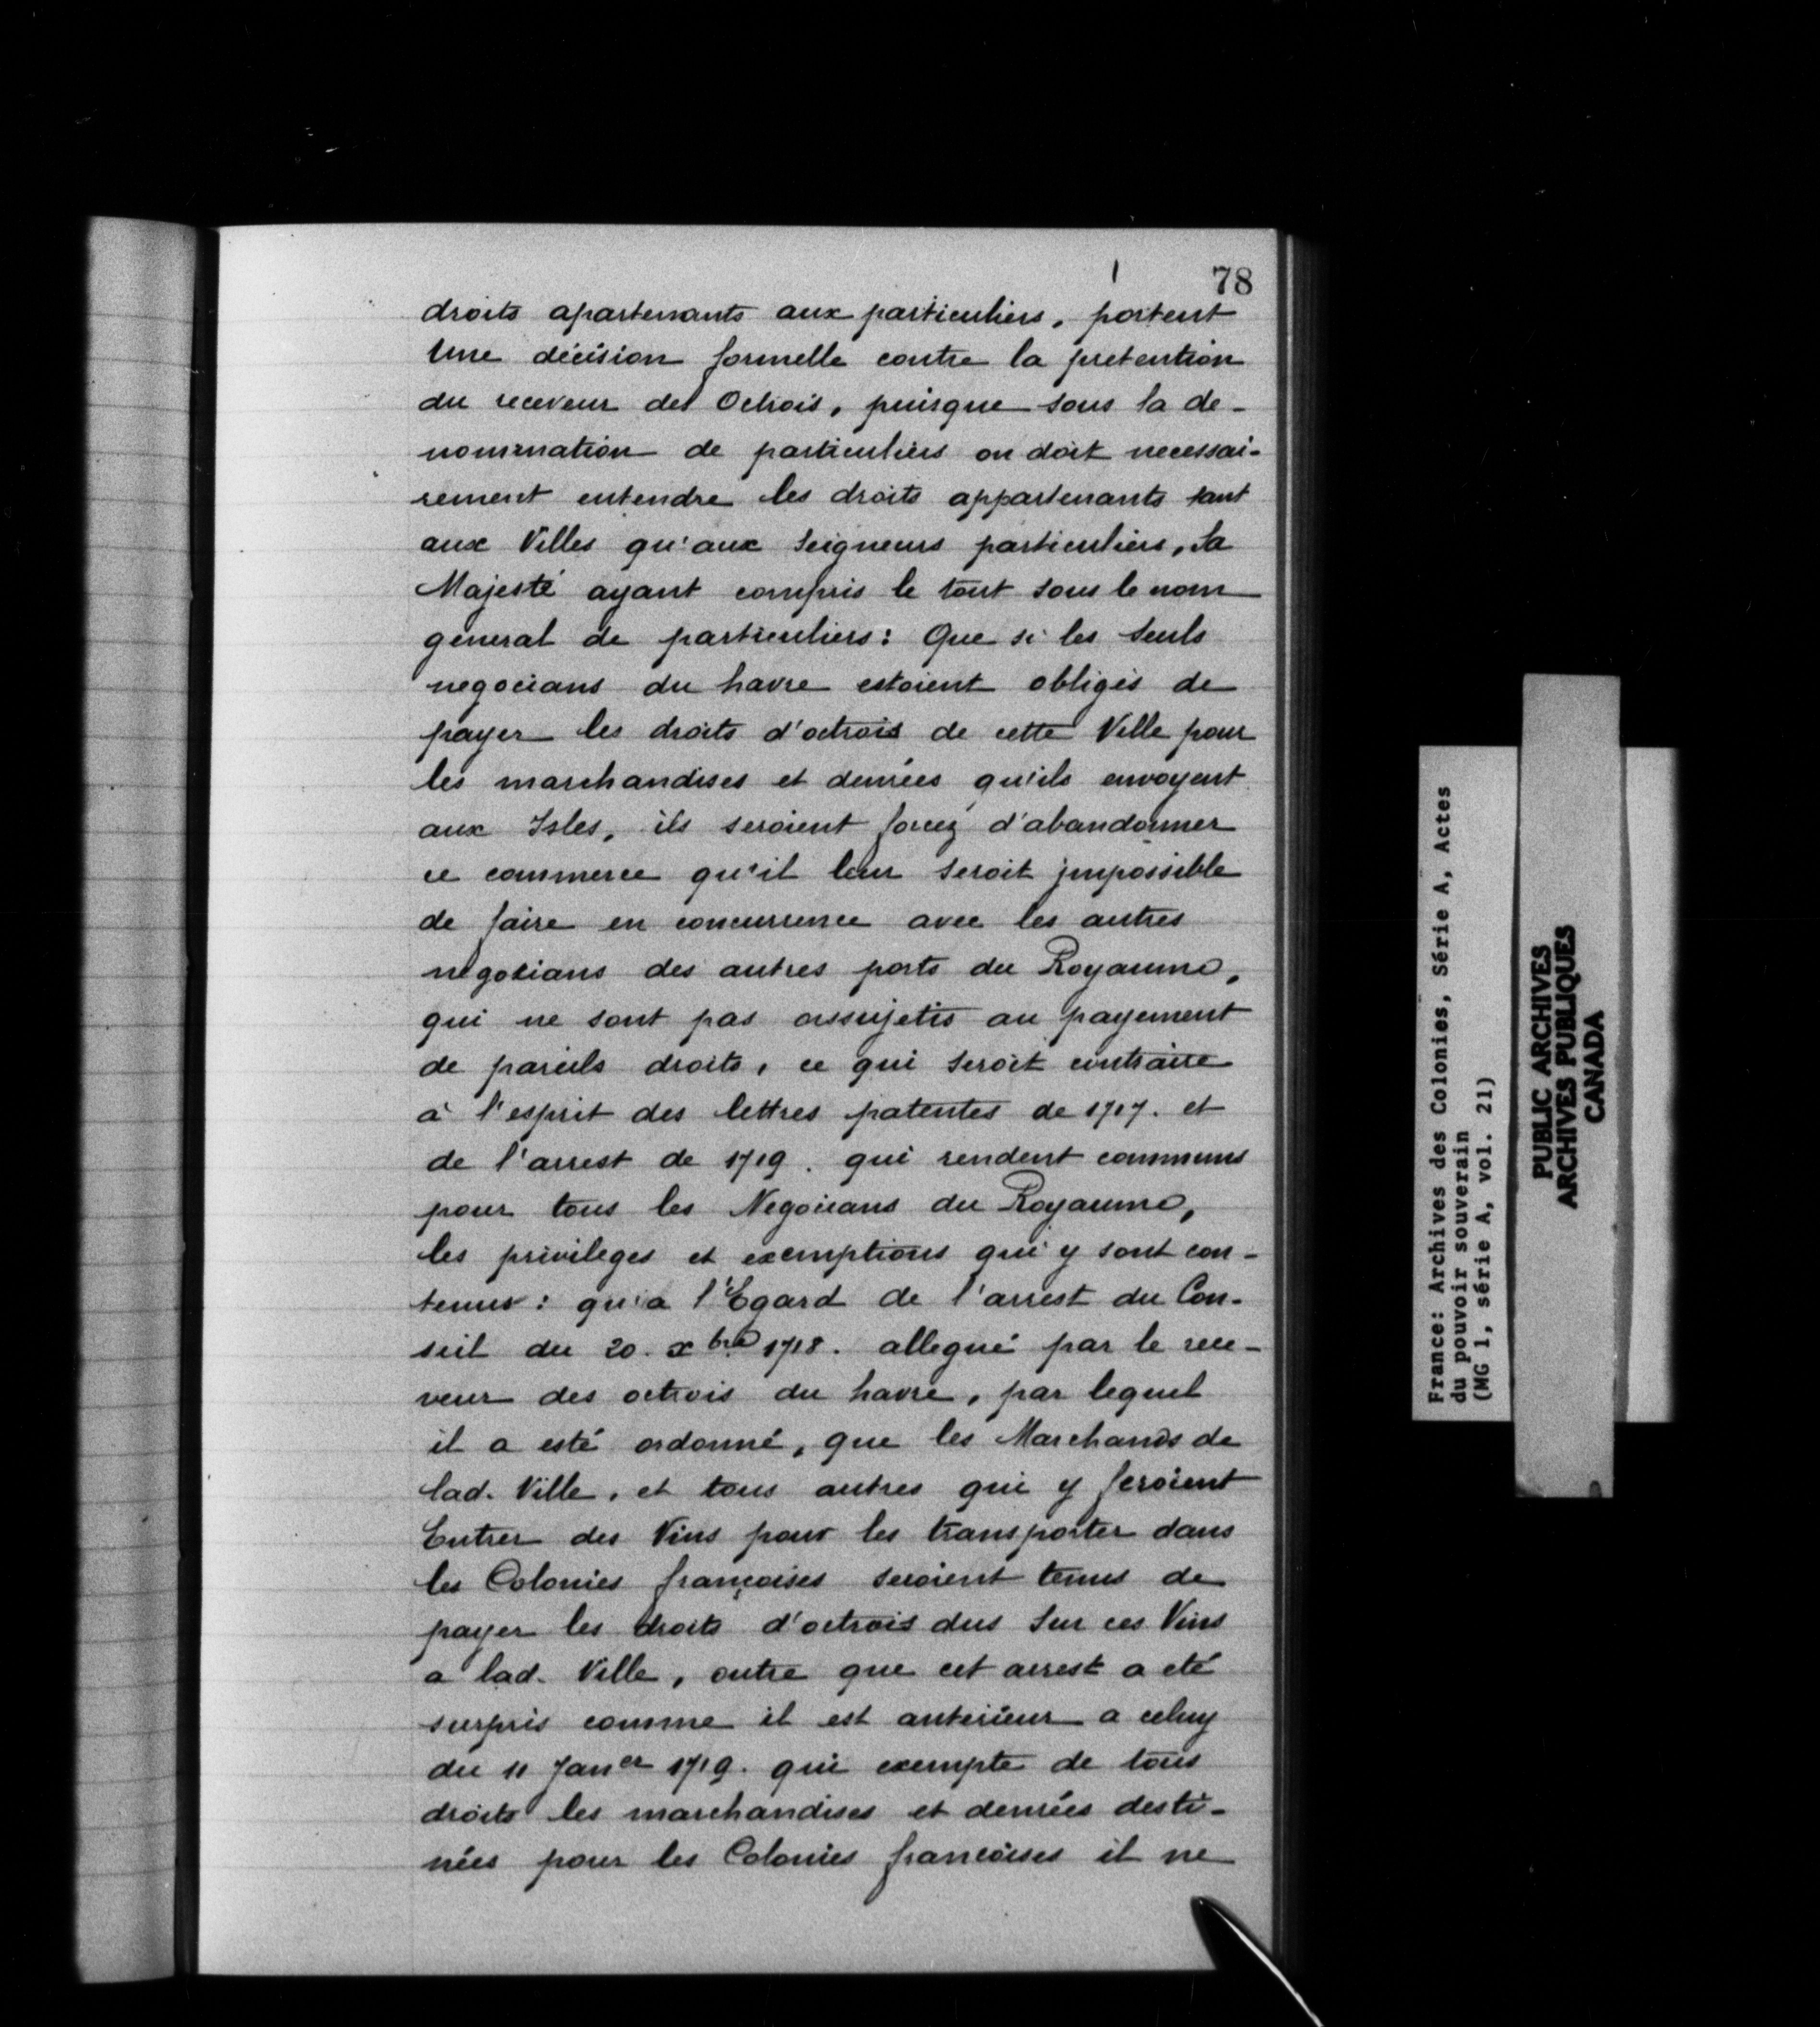 78
droits apartenants aux particuliers, portent
Une décision formelle contre la pretention
du receveur des Octrois, puisque sous la de-
nomination de particuliers on doit necessai-
rement entendre les droits appartenants tant
aux Villes qu'aux Seigneurs particuliers, Sa
Majesté ayant compris le tout sous le nom
general de particuliers: Que si les Seuls
negocians du havre estoient obligés de
payer les droits d'octrois de cette Ville pour
les marchandises et denrées qu'ils envoyent
aux Isles, ils seroient forcez d'abandonner
ce commerce qu'il leur seroit impossible
de faire en concurrence avec les autres
negotians des autres ports du Royaume,
qui ne sont pas assujetis au payement
de pareils droits, ce qui seroit contraire
à l'esprit des lettres patentes de 1717. et
de l'arrest de 1719. qui rendent communs
pour tous les Negocians du Royaume,
les privileges et exemptions qui y sont con-
tenus: qu'a l'Egard de l'arrest du Con-
seil du 20. xbre 1718. allegué par le rece-
veur des octrois du havre, par lequel
il a esté ordonné, que les Marchands de
lad. Ville, et tous autres qui y feroient
Entrer des Vins pour les transporter dans
les Colonies françoises seroient tenus de
payer les droits d'octrois dus Sur ces Vins
a lad. Ville, outre que cet arrest a eté
surpris comme il est anterieur a celuy
du 11 Janer 1719. qui exempte de tous
droits les marchandises et denrées desti-
nées pour les Colonies francoises il ne
France: Archives des Colonies, Série A, Actes
du pouvoir souverain
(MG 1, série A, vol. 21)
PUBLIC ARCHIVES
ARCHIVES PUBLIQUES
CANADA